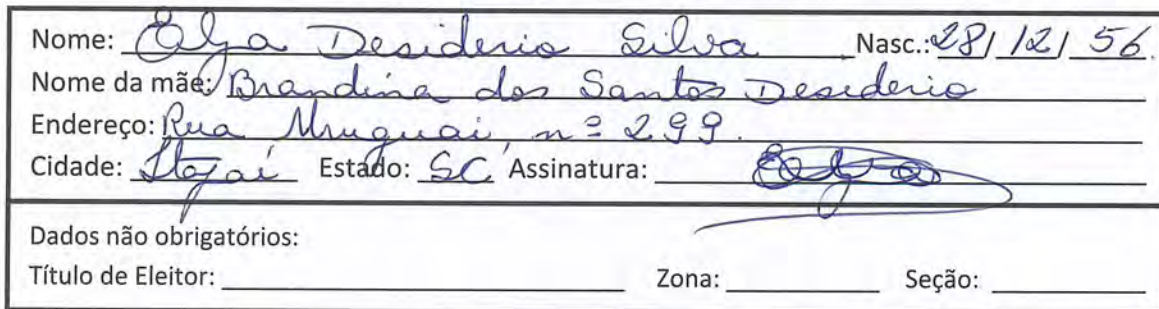 Nome: Elza Desiderio Silva Nasc.: 28/ 12/ 56.
Nome da mãe: Brandina dos Santos Desiderio
Endereço: Rua Uruguai, nº 299.
Cidade: Itajaí Estado: SC Assinatura:
Dados não obrigatórios:
Título de Eleitor: Zona: Seção: